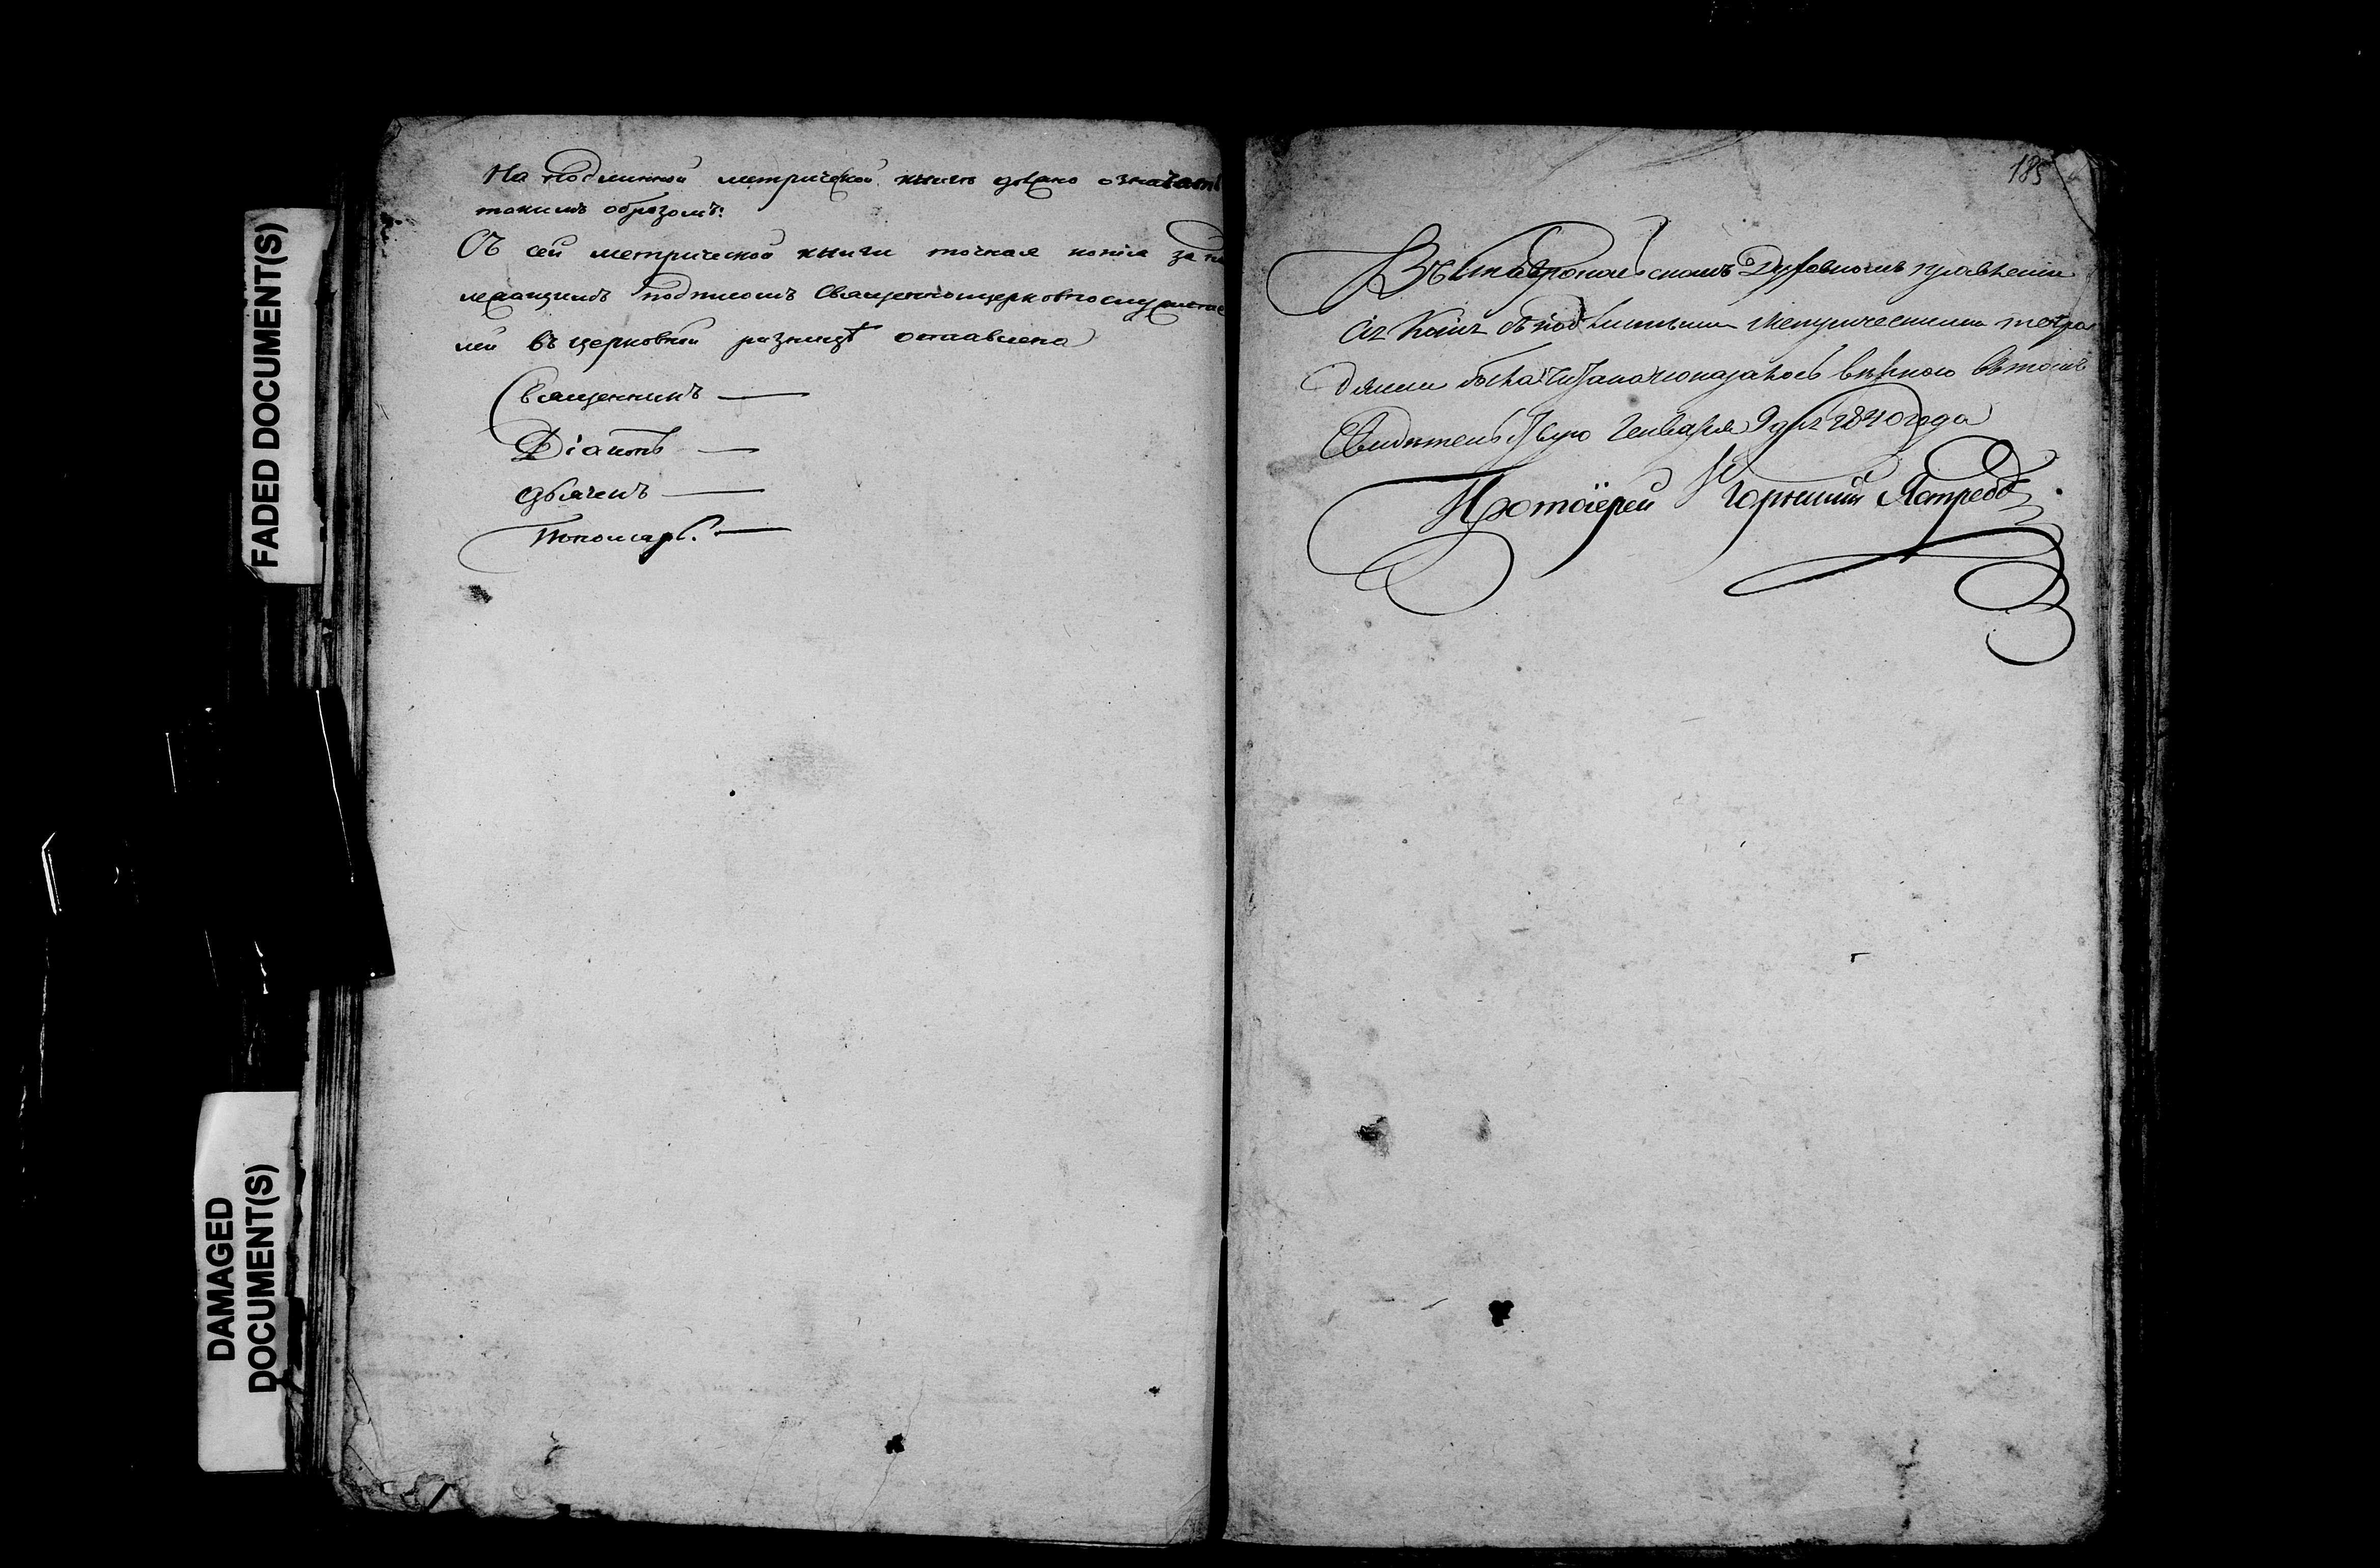 FADED DOCUMENT(S)
DAMAGED
DOCUMENT(S)
На подлинной метрической книгѣ дѣлано означать
такимъ образомъ:
Съ сей метрической книги точная копія за
лежащимъ подписомъ Священноцерковнослужите
лей въ церковной ризницѣ оставлена
Священникъ —
Діаконъ —
дьячекъ —
Пономарь. —
185
Въ Ставропольскомъ Духовномъ правленіи
сія Копія съ подлинными Метрическими тетра
дями была читана и оказалось вѣрною въ томъ
Свидѣтельствую Генваря 9 дня 1840 года
Протоіерей Ястребов